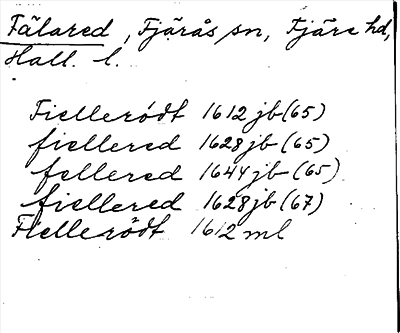 Fälared, Fjärås sn, Fjäre hd,
Hall. l.
Fiellerödt 1612 jb (65)
fiellered 1628 jb (65)
fellered 1644 jb (65)
fiellered 1628 jb (67)
Fiellerödt 1612 ml